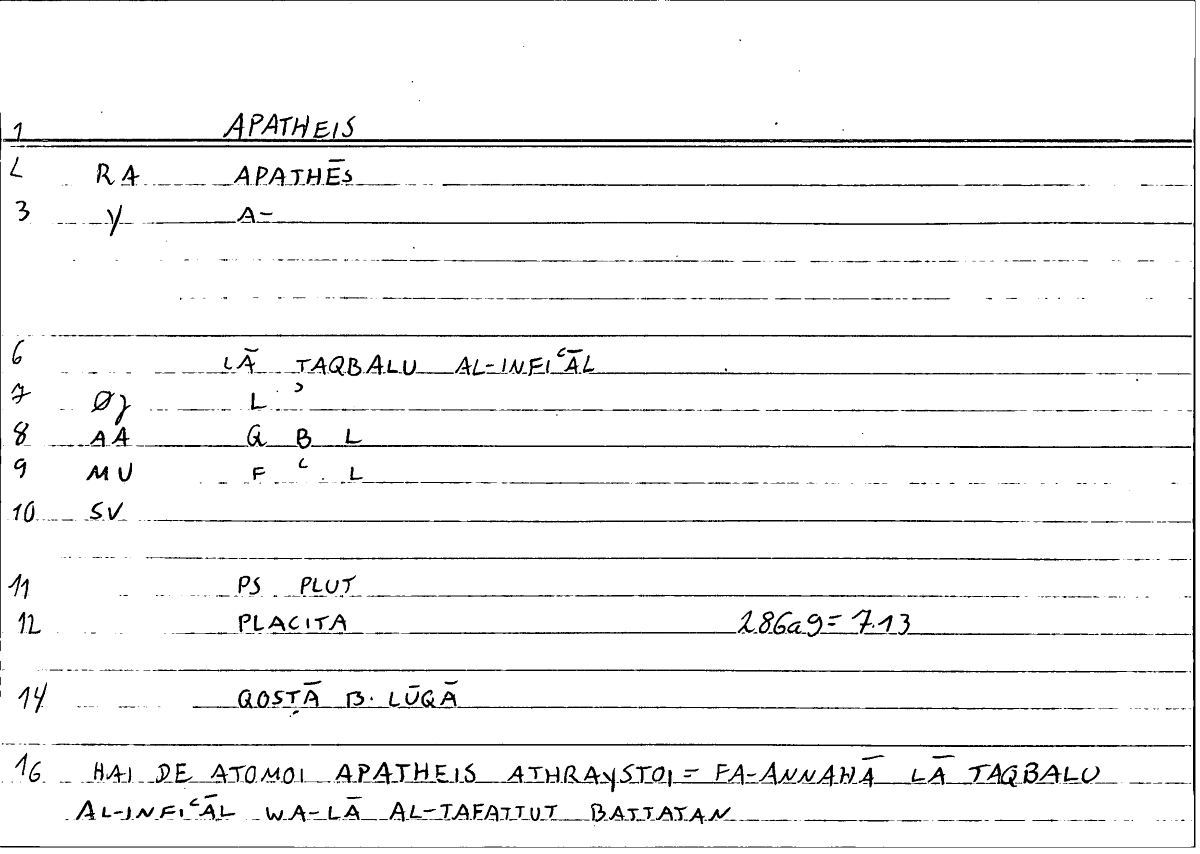 1 APATHEIS
2 RA APATHĒS
3 Y A-
6 LĀ TAQBALU AL-INFIʿĀL
7 Øj L ʾ
8 AA Q B L
9 MU F ʿ L
10 SV
11 PS PLUT
12 PLACITA 286a9 = 7.13
14 QOSṬĀ B. LŪQĀ
16 HAI DE ATOMOI APATHEIS ATHRAYSTOI = FA-ANNAHĀ LĀ TAQBALU
AL-INFIʿĀL WA-LĀ AL-TAFATTUT BATTATAN